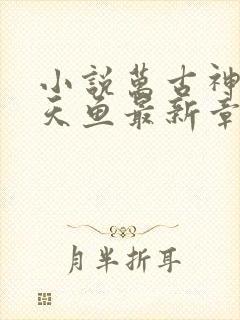 小說萬古神
天魚最新章
月半折耳